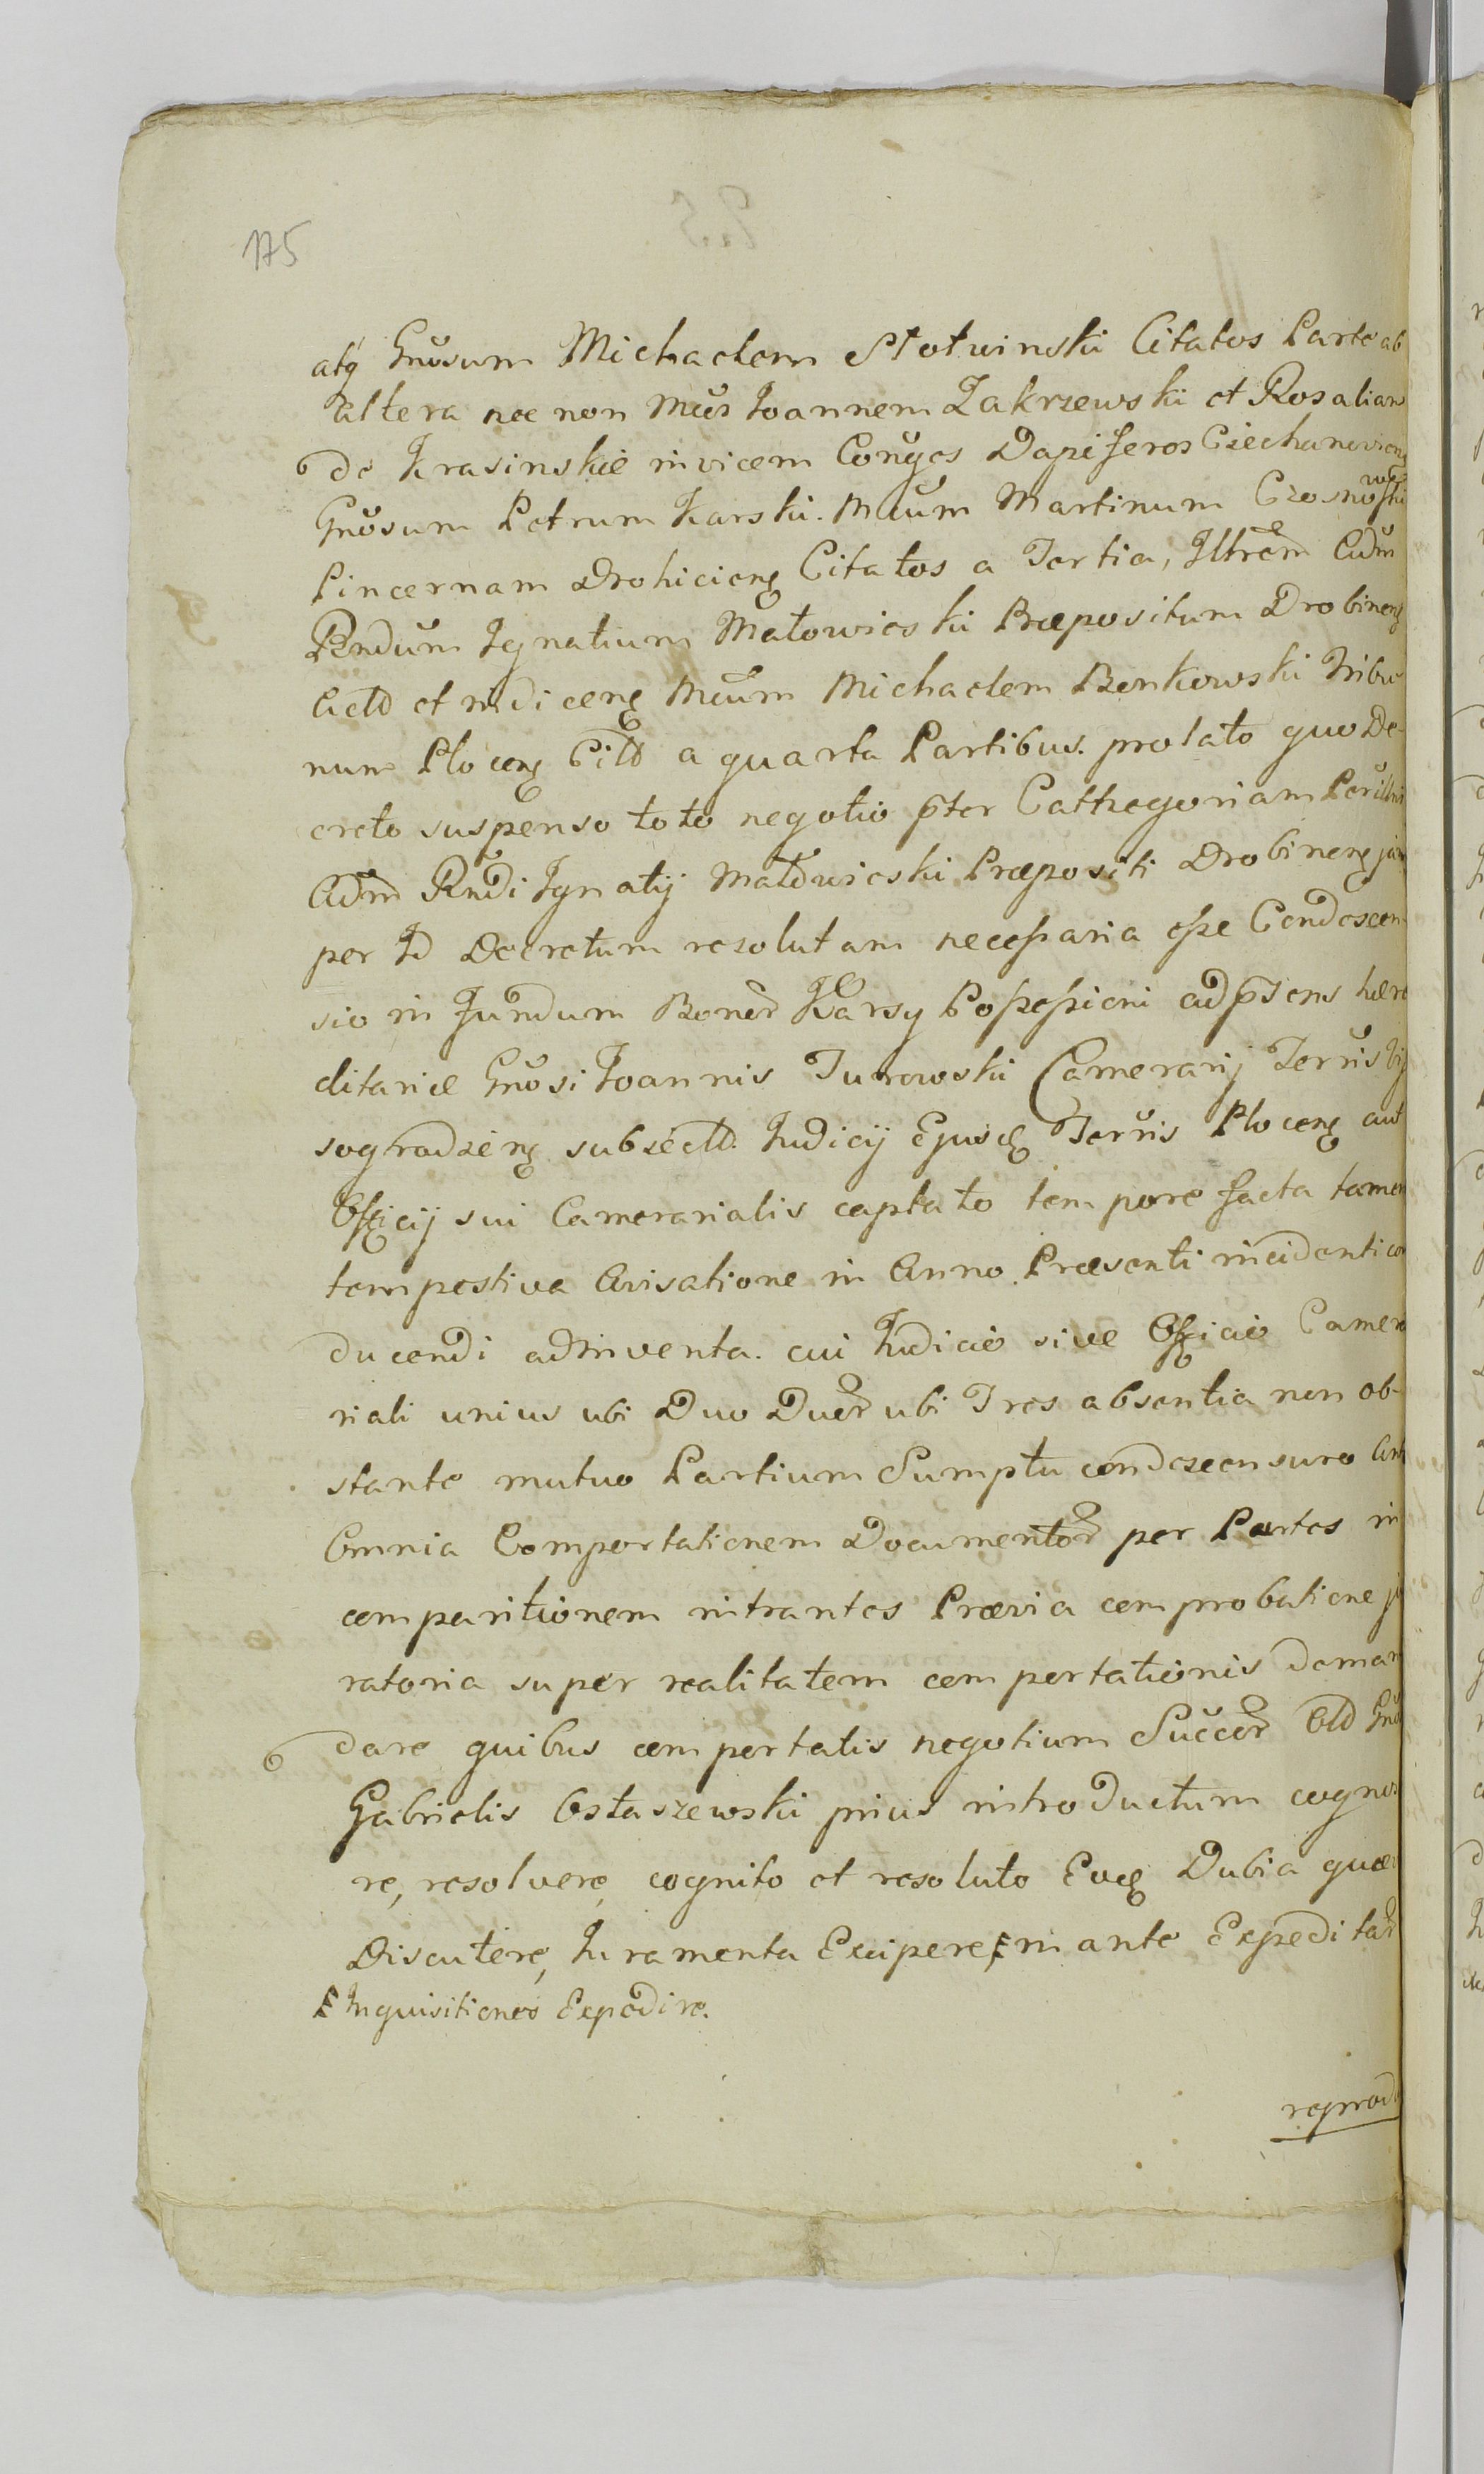 175
atq Gnosum Michaelem Słotwinski Citatos Parte ab
altera nec non Mcos Joannem Zakrzewski et Rosaliam
de Krasinskie invicem Conjges Dapiferos Ciechanoviens
Gnosum Petrum Karski. Mcum Martinum Czosnowski
Pincernam Drohiciens Citatos a Tertia, Illtrem Adm
Rndum Ignatium Małowieski Præpositum Drobinens
Actd et indicens Mcum Michaelem Bonkowski Tribu
num Plocens Citd a quarta Partibus. prolato quo De-
creto suspenso toto negotio pter Cathegoriam Perillris
Adm Rndi Ignatij Małowieski Præpositi Drobinens jam
per Id Decretum resolutam necessaria esse Condescen
sio in fundum Bonor Karsy Possessioni ad psens hære
ditariæ Gnosi Joannis Turowski Camerarij Terris Vij
sogradiens subsectd. Judicij Ejusd Terris Plocens aut
Officij sui Camerarialis captato tempore facta tamen
tempestiva Avisatione in Anno Præsenti incidenti con
ducendi adinventa. cui Judicio sive Officio Camera
riali unius ubi Duo Duor ubi Tres absentia non ob-
stante mutuo Partium Sumptu condescensuro Ante
Omnia Comportationem Documentor per Partes in
comparitionem intrantes Prævia comprobatione ju
ratoria super realitatem comportationis deman
dare quibus comportatis negotium Succor Old Gnosi
Gabrielis Ostaszewski prius introductum cognos
re, resolvere, cognito et resoluto Eod Dubia quæ
Discutere, Juramenta Excipere, in ante Expeditar
Inquisitiones Expedire.
reprod